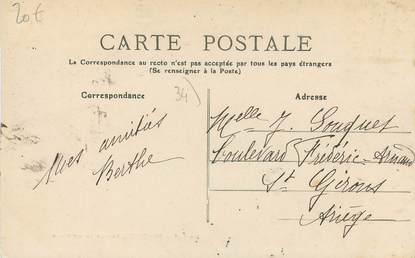 20€
CARTE POSTALE
La Correspondance au recto n'est pas acceptée par tous les pays étrangers
(Se renseigner à la Poste)
Correspondance
34
Adresse
Mes amitiés
Berthe
Melle J. Souquet
Boulevard Frédéric-Arnaud
St Girons
Ariège